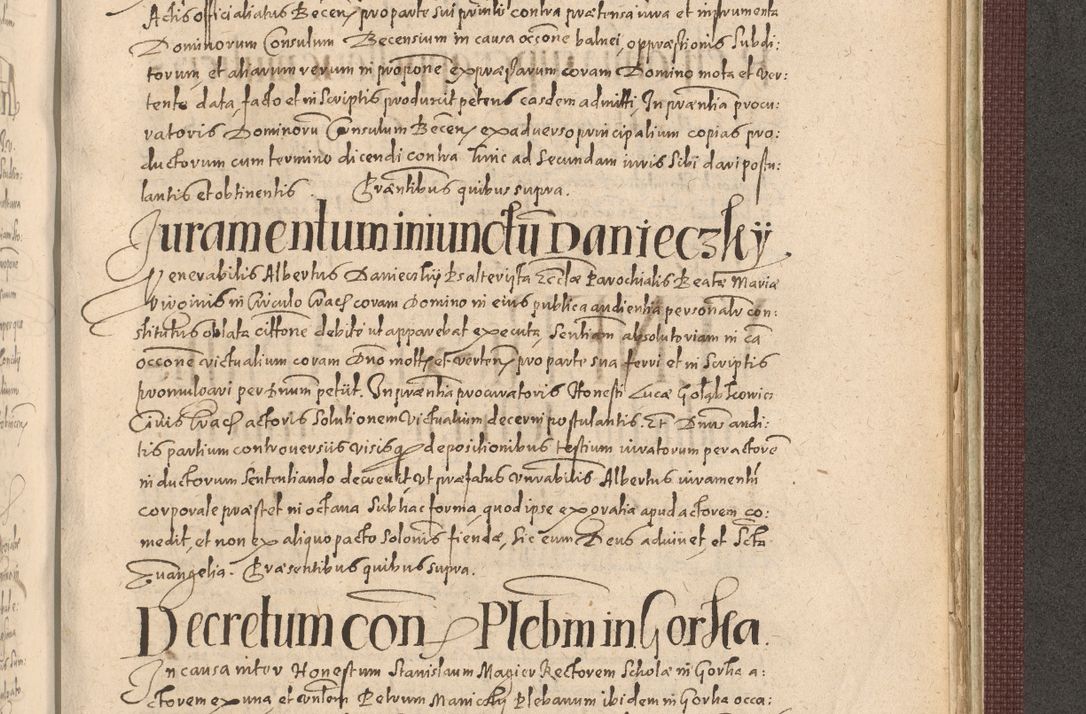 Actis officialiatus Beceń pro parte sui princlis contra prætensa iura et instrumenta
Dominorum Consulum Becensium in causa occōne balnei, oppræssionis Subdi-
torum, et aliarum rerum in propōne expræssarum coram Domino mota et ver:
tente data, facto et in Scriptis producit petens easdem admitti, In præntia procu:
ratoris Dominorū Consulum Beceń ex adverso principalium copias pro:
ductorum cum termino dicendi contra hinc ad Secundam iuris Sibi dari postu:
lantis et obtinentis. Præntibus quibus supra.
Juramentum iniunctū Danieczkÿ
Venerabilis Albertus Danieczkÿ Psalterista Ecclæ Parochialis Beatæ Mariæ
Virginis in Circulo Crac: coram Domino in eius publica audientia personalr con:
stitutus oblata cittōne debite ut apparebat executa, Sentiam absolutoriam in cā
occōne victualium coram Dno mota et verteń pro parte sua ferri et in Scriptis
promulgari per Dnum petiit. In præntia procuratoris Honesti Lucæ Goląbkowicz
Civis Crac: actoris Solutionem victualium decerni postulantis. Et Dnus audi:
tis partium controversiis visisq depositionibus testium iuratorum per actorē
inductorum Sententiando decrevit, ut præfatus Vnrabilis Albertus iuramentū
corporale præstet in octava Sub hac forma, quod ipse ex gratia apud actorem co:
medit, et non ex aliquo pacto Solonis fiendæ, Sic eum Deus adiuvet, et Scta
Evangelia. Præsentibus quibus supra.
Decretum con Plebm in Gorka
In causa inter Honestum Stanislaum Magier Rectorem Scholæ in Gorka a:
ctorem ex una, et Petrum Maniczky Plebanum ibidem in Gorka occa: